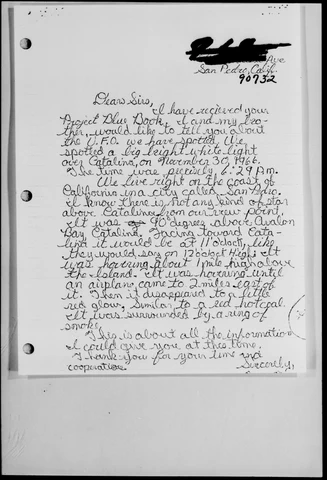 Ave
San Pedro, Calif.
90732
Dear Sirs,
I have recieved your
Project Blue Book. I and my bro-
ther, would like to tell you about
the U.F.O. we have spotted. We
spotted a big bright white light
over Catalina, on November 30, 1966.
The time was precisly 6:29 P.M.
We live right on the coast of
California in a city called San Pedro.
I know there is not any kind of star
above Catalina from our view point.
It was 90 degrees above Avalon
Bay, Catalina. Facing toward Cata-
lina it would be at 11 o'clock, like
they would say on 12 o'clock High. It
was hovring about 1 mile high above
the Island. It was hovring until
an airplane came to 2 miles east of
it. Then it disappeard to a little
red glow. Similar to a red hot coal.
It was surrounded by a ring of
smoke.
This is about all the information
I could give you at this time.
Thank you for your time and
cooperation.
Sincerlly,